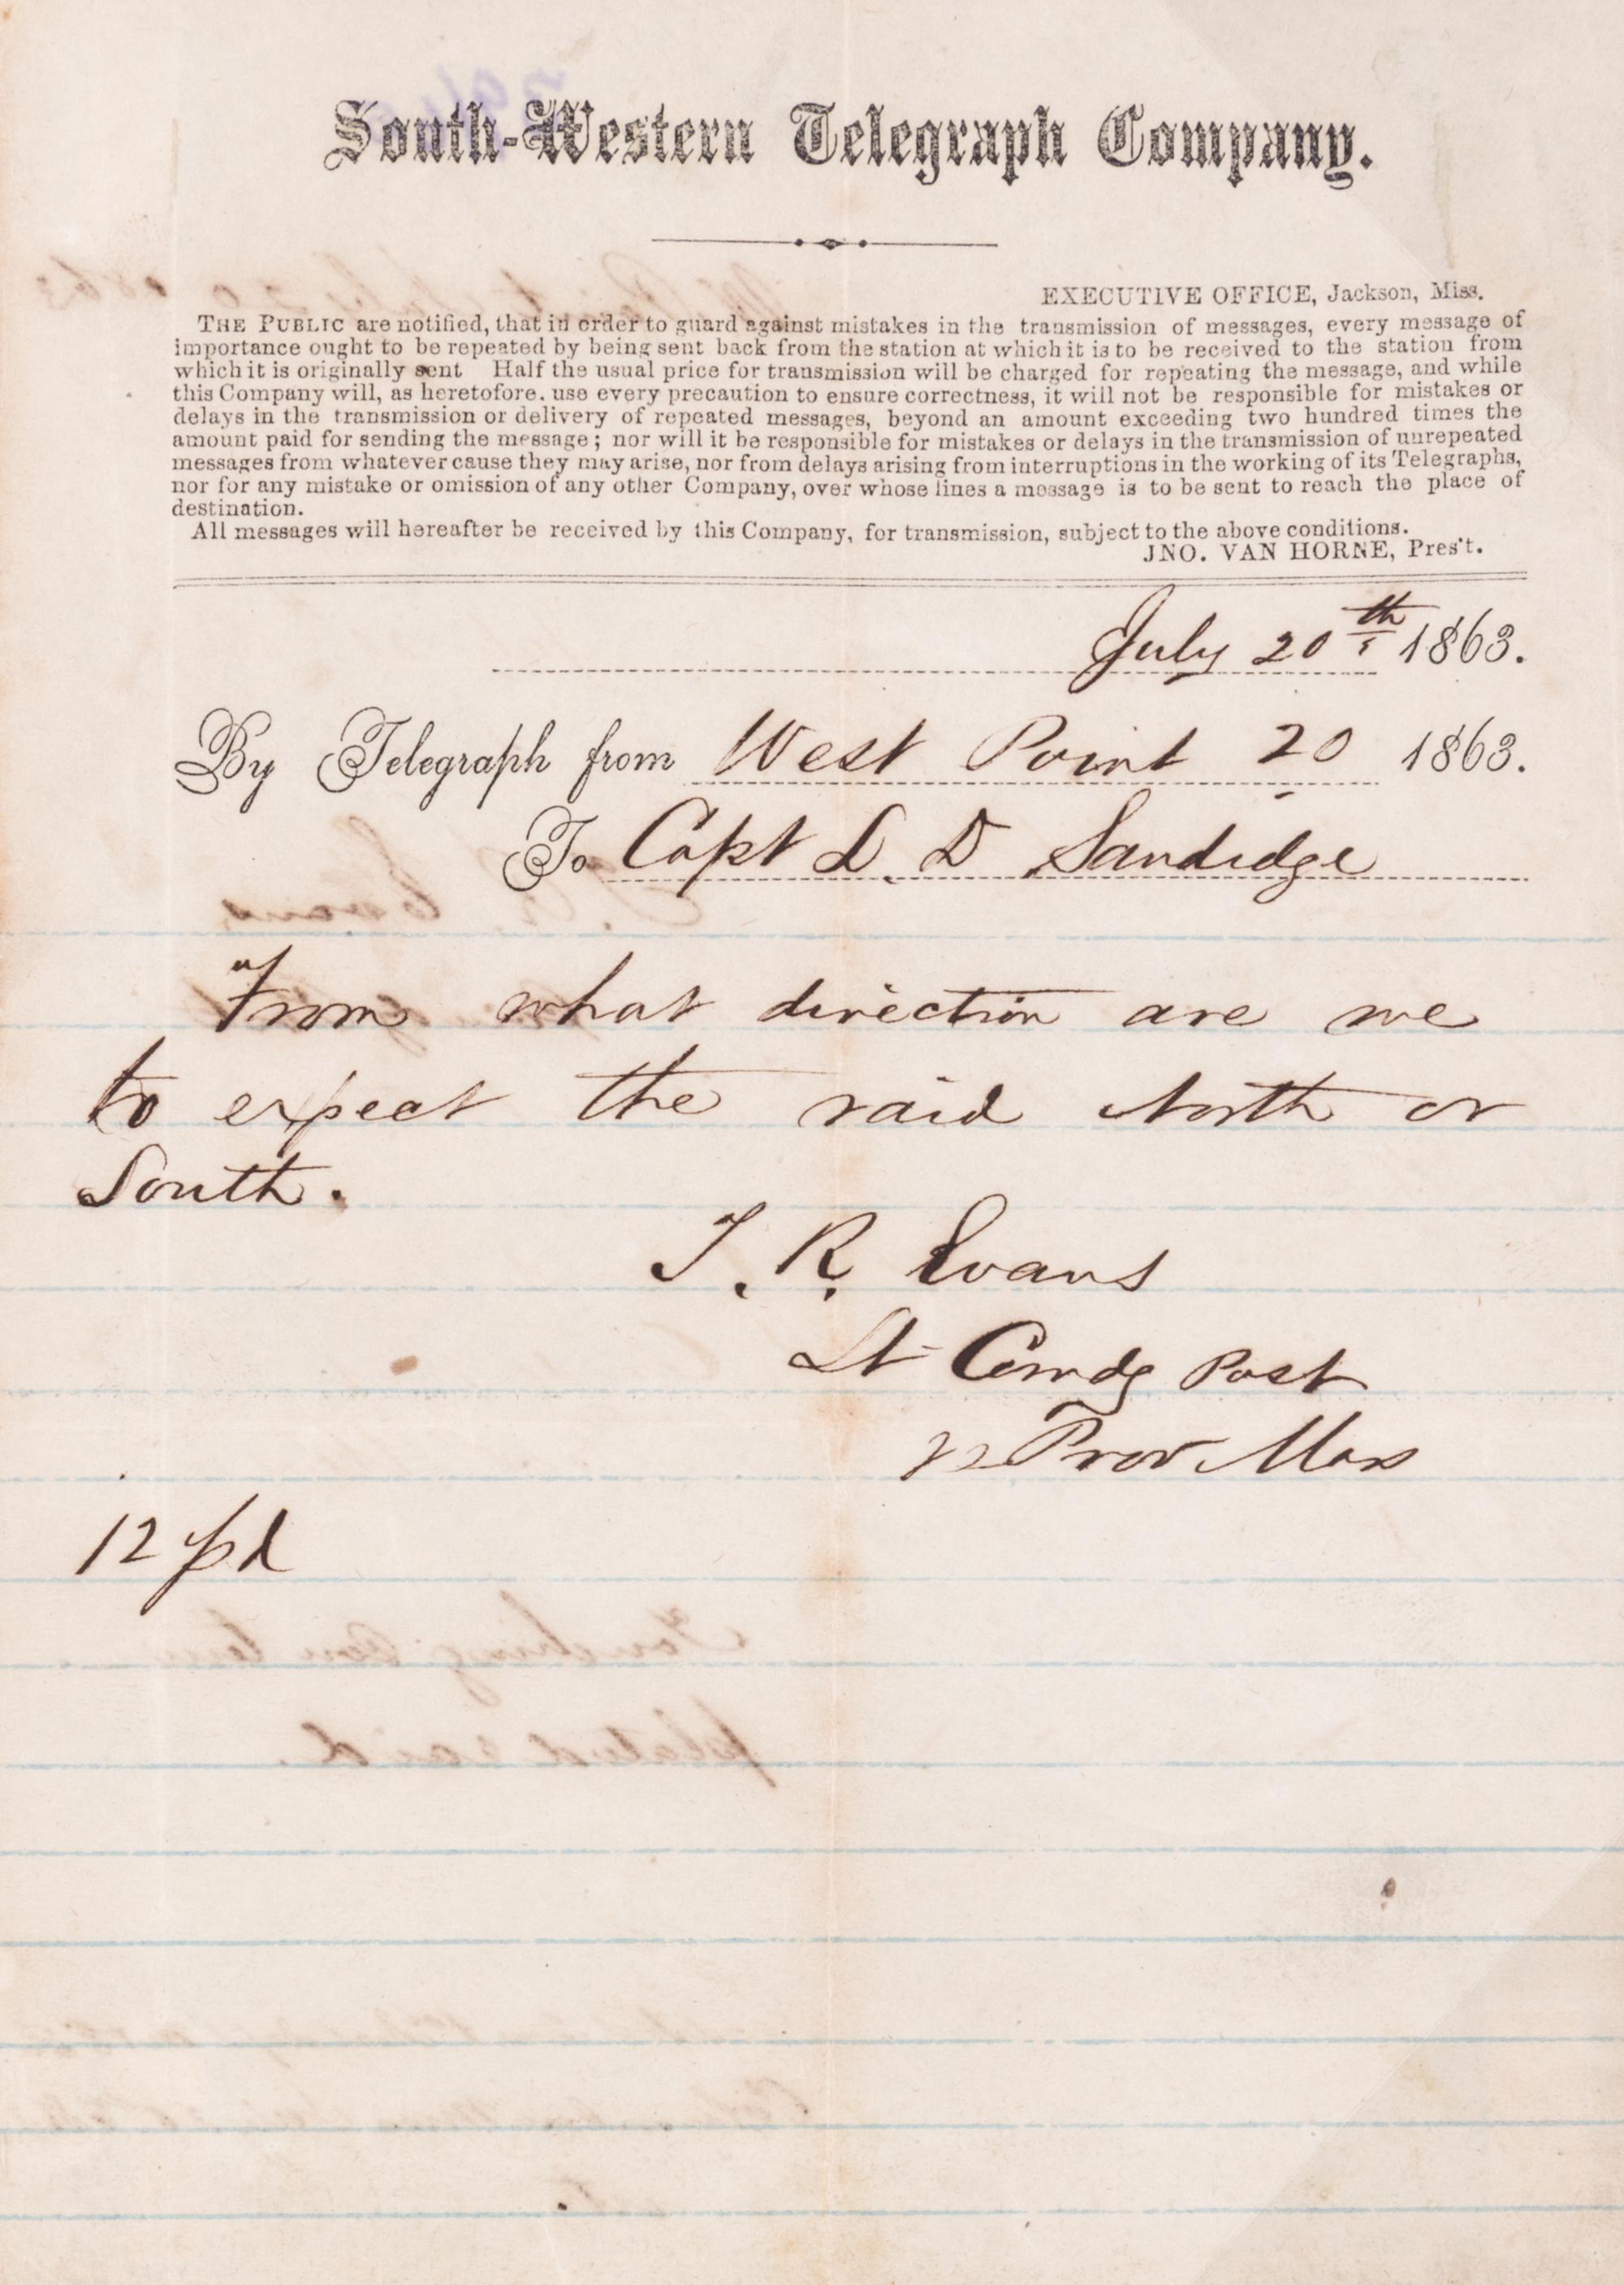 South-Western Telegraph Company.
EXECUTIVE OFFICE, Jackson, Miss.
THE PUBLIC are notified, that in order to guard against mistakes in the transmission of messages, every message of
importance ought to be repeated by being sent back from the station at which it is to be received to the station from
which it is originally sent Half the usual price for transmission will be charged for repeating the message, and while
this Company will, as heretofore. use every precaution to ensure correctness, it will not be responsible for mistakes or
delays in the transmission or delivery of repeated messages, beyond an amount exceeding two hundred times the
amount paid for sending the message; nor will it be responsible for mistakes or delays in the transmission of unrepeated
messages from whatever cause they may arise, nor from delays arising from interruptions in the working of its Telegraphs,
nor for any mistake or omission of any other Company, over whose lines a message is to be sent to reach the place of
destination.
All messages will hereafter be received by this Company, for transmission, subject to the above conditions.
JNO. VAN HORNE, Pres't.
July 20th 1863.
By Telegraph from West Point 20 1863.
To Capt L. D Sandidge
From what direction are we
to expect the raid North or
South.
T. R. Evans
Lt Comdg Post
Prov Mar
12 pd